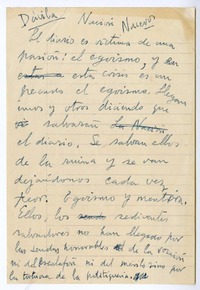 Nación Nuevos
El diario es víctima de una
pasión: el egoísmo, y en
esta crisis es un
pecado el egoísmo. Llegan
unos y otros diciendo que
salvarán La Nación
el diario. Se salvan ellos
de la ruina y se van
dejándonos cada vez
peor. Egoísmo y mentira.
Ellos, los sedientes
salvadores no han llegado por
las sendas honorables de la
ni del escalafón ni del meritorismo por
la de la